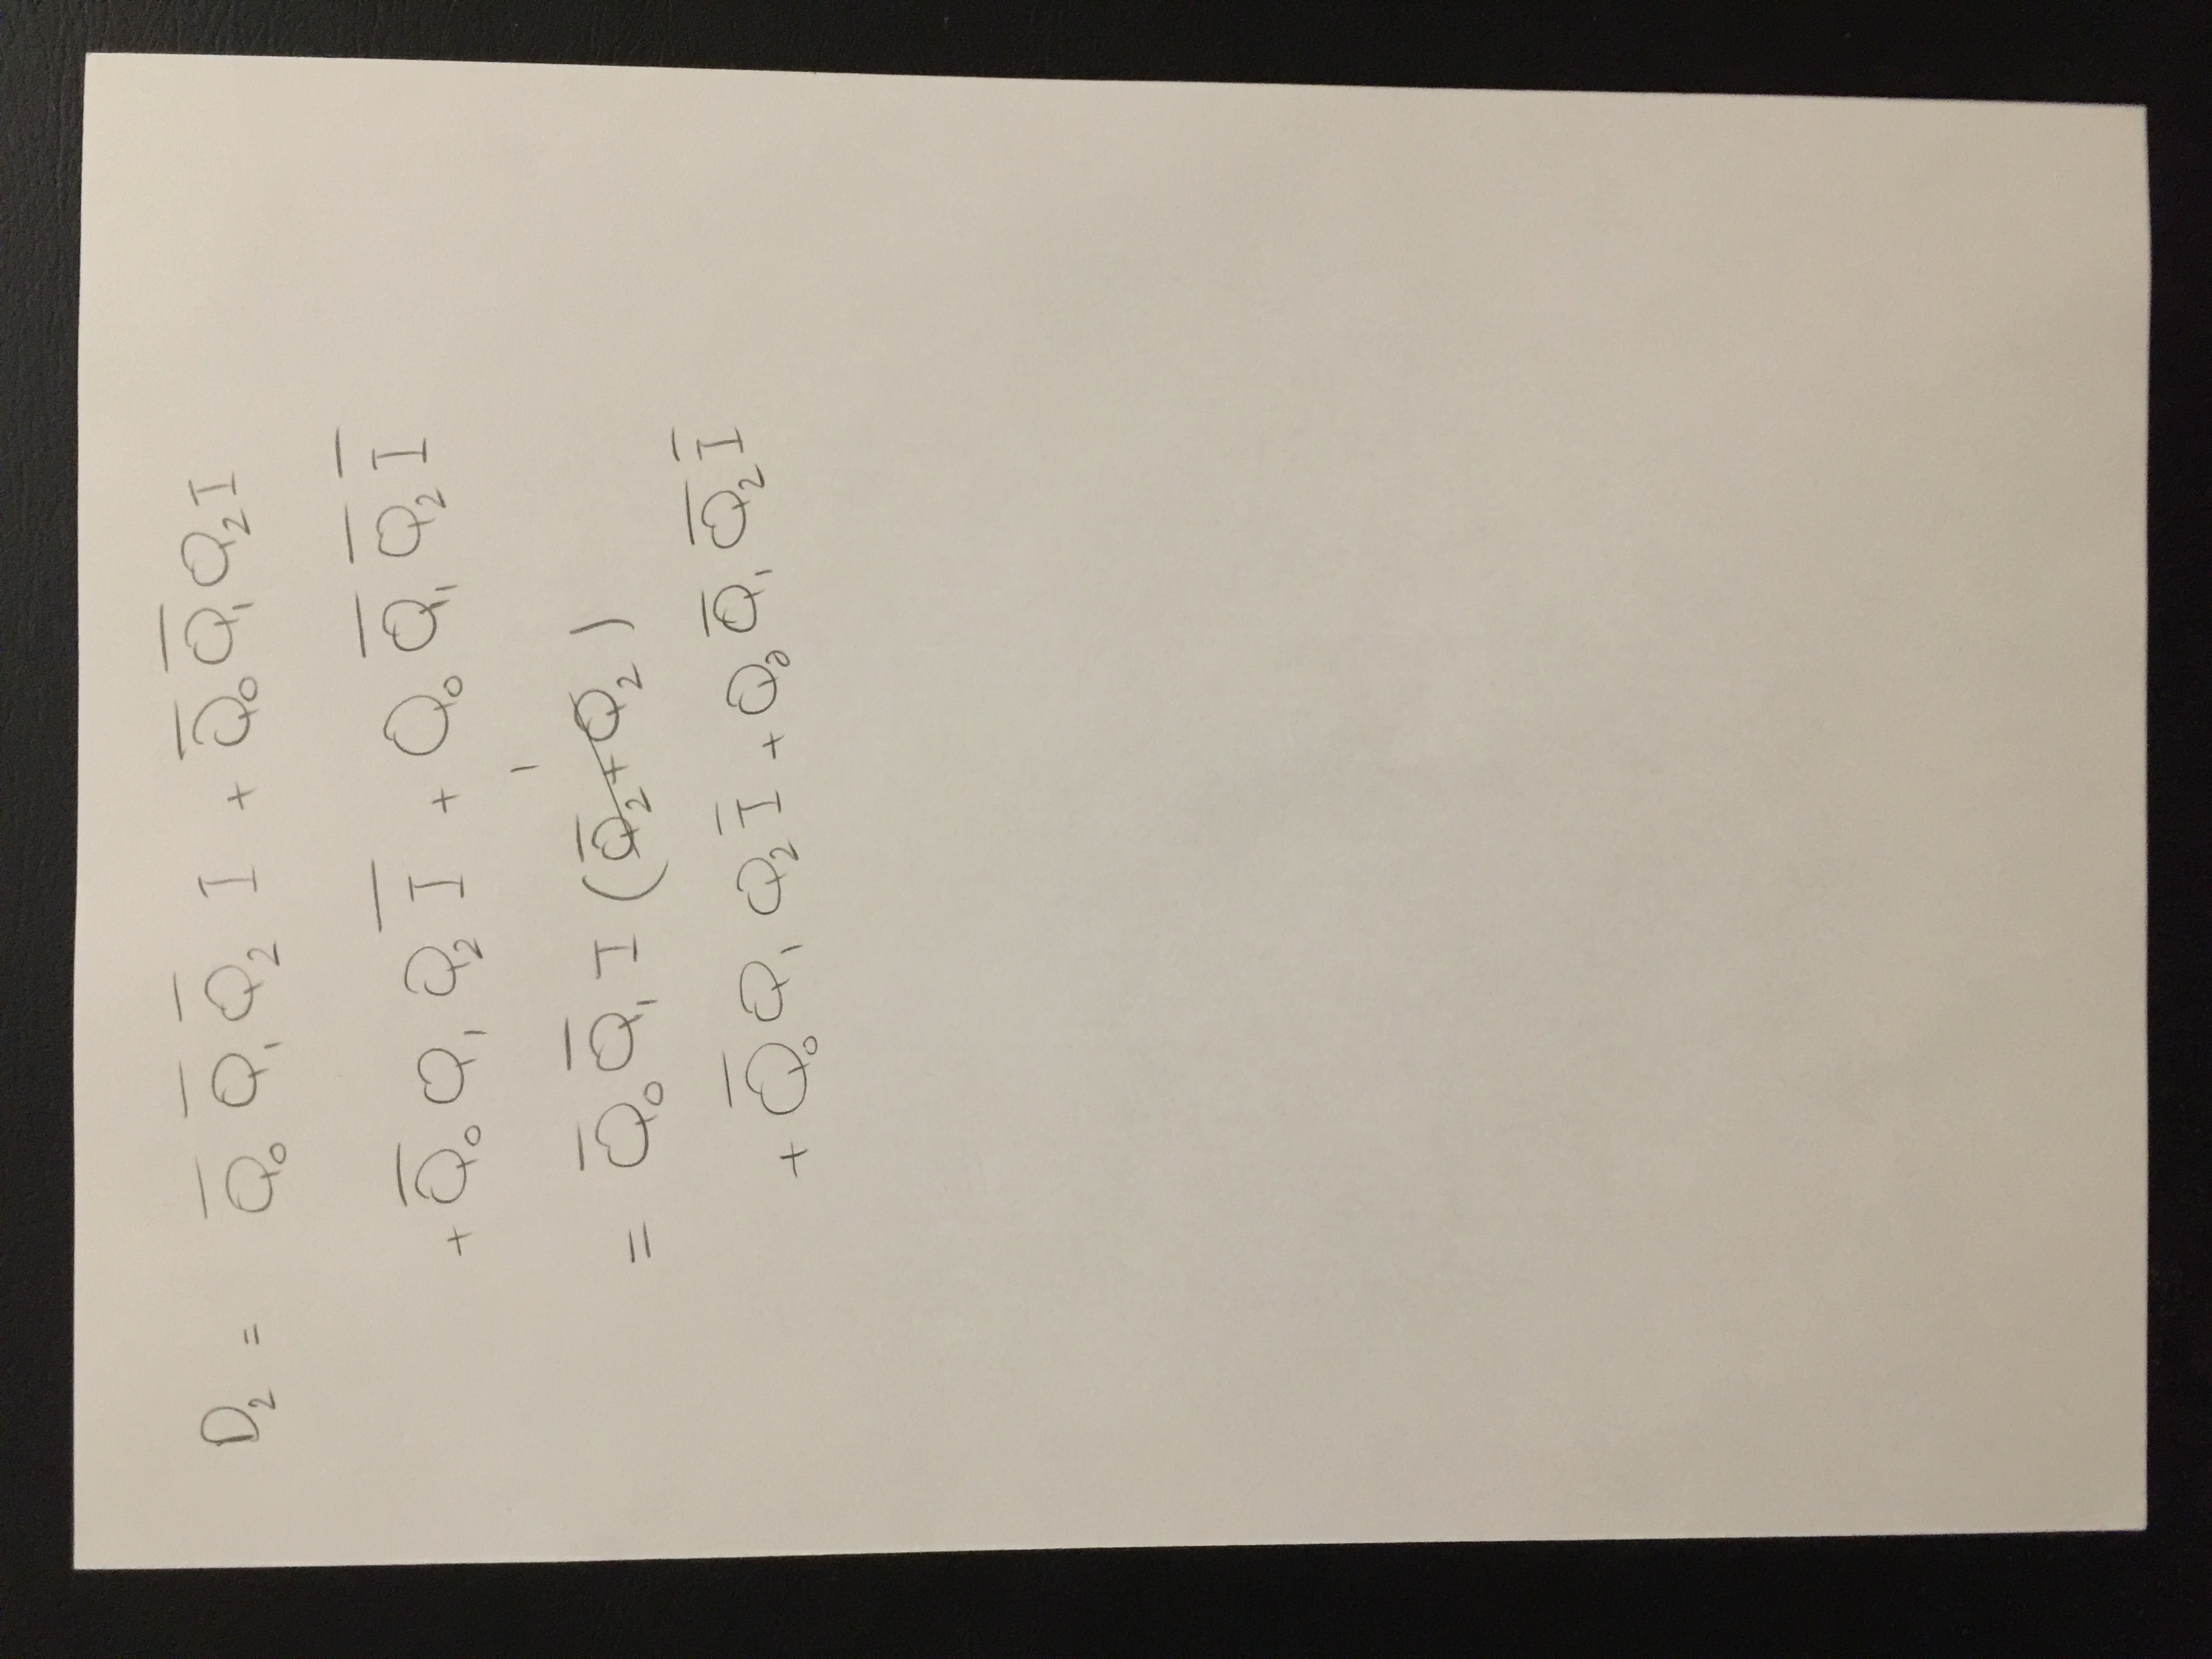 D₂ = Q̅₀ Q̅₁ Q̅₂ I + Q̅₀ Q̅₁ Q₂ I
+ Q̅₀ Q₁ Q₂ I̅ + Q₀ Q̅₁ Q̅₂ I̅
1
= Q̅₀ Q̅₁ I (Q̅₂ + Q₂)
+ Q̅₀ Q₁ Q₂ I̅ + Q₀ Q̅₁ Q̅₂ I̅